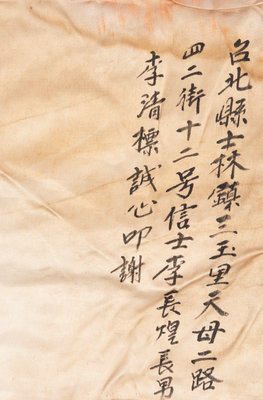 台北縣士林鎮三玉里天母二路
四二街十二号信士李長煌長男
李清標誠心叩謝